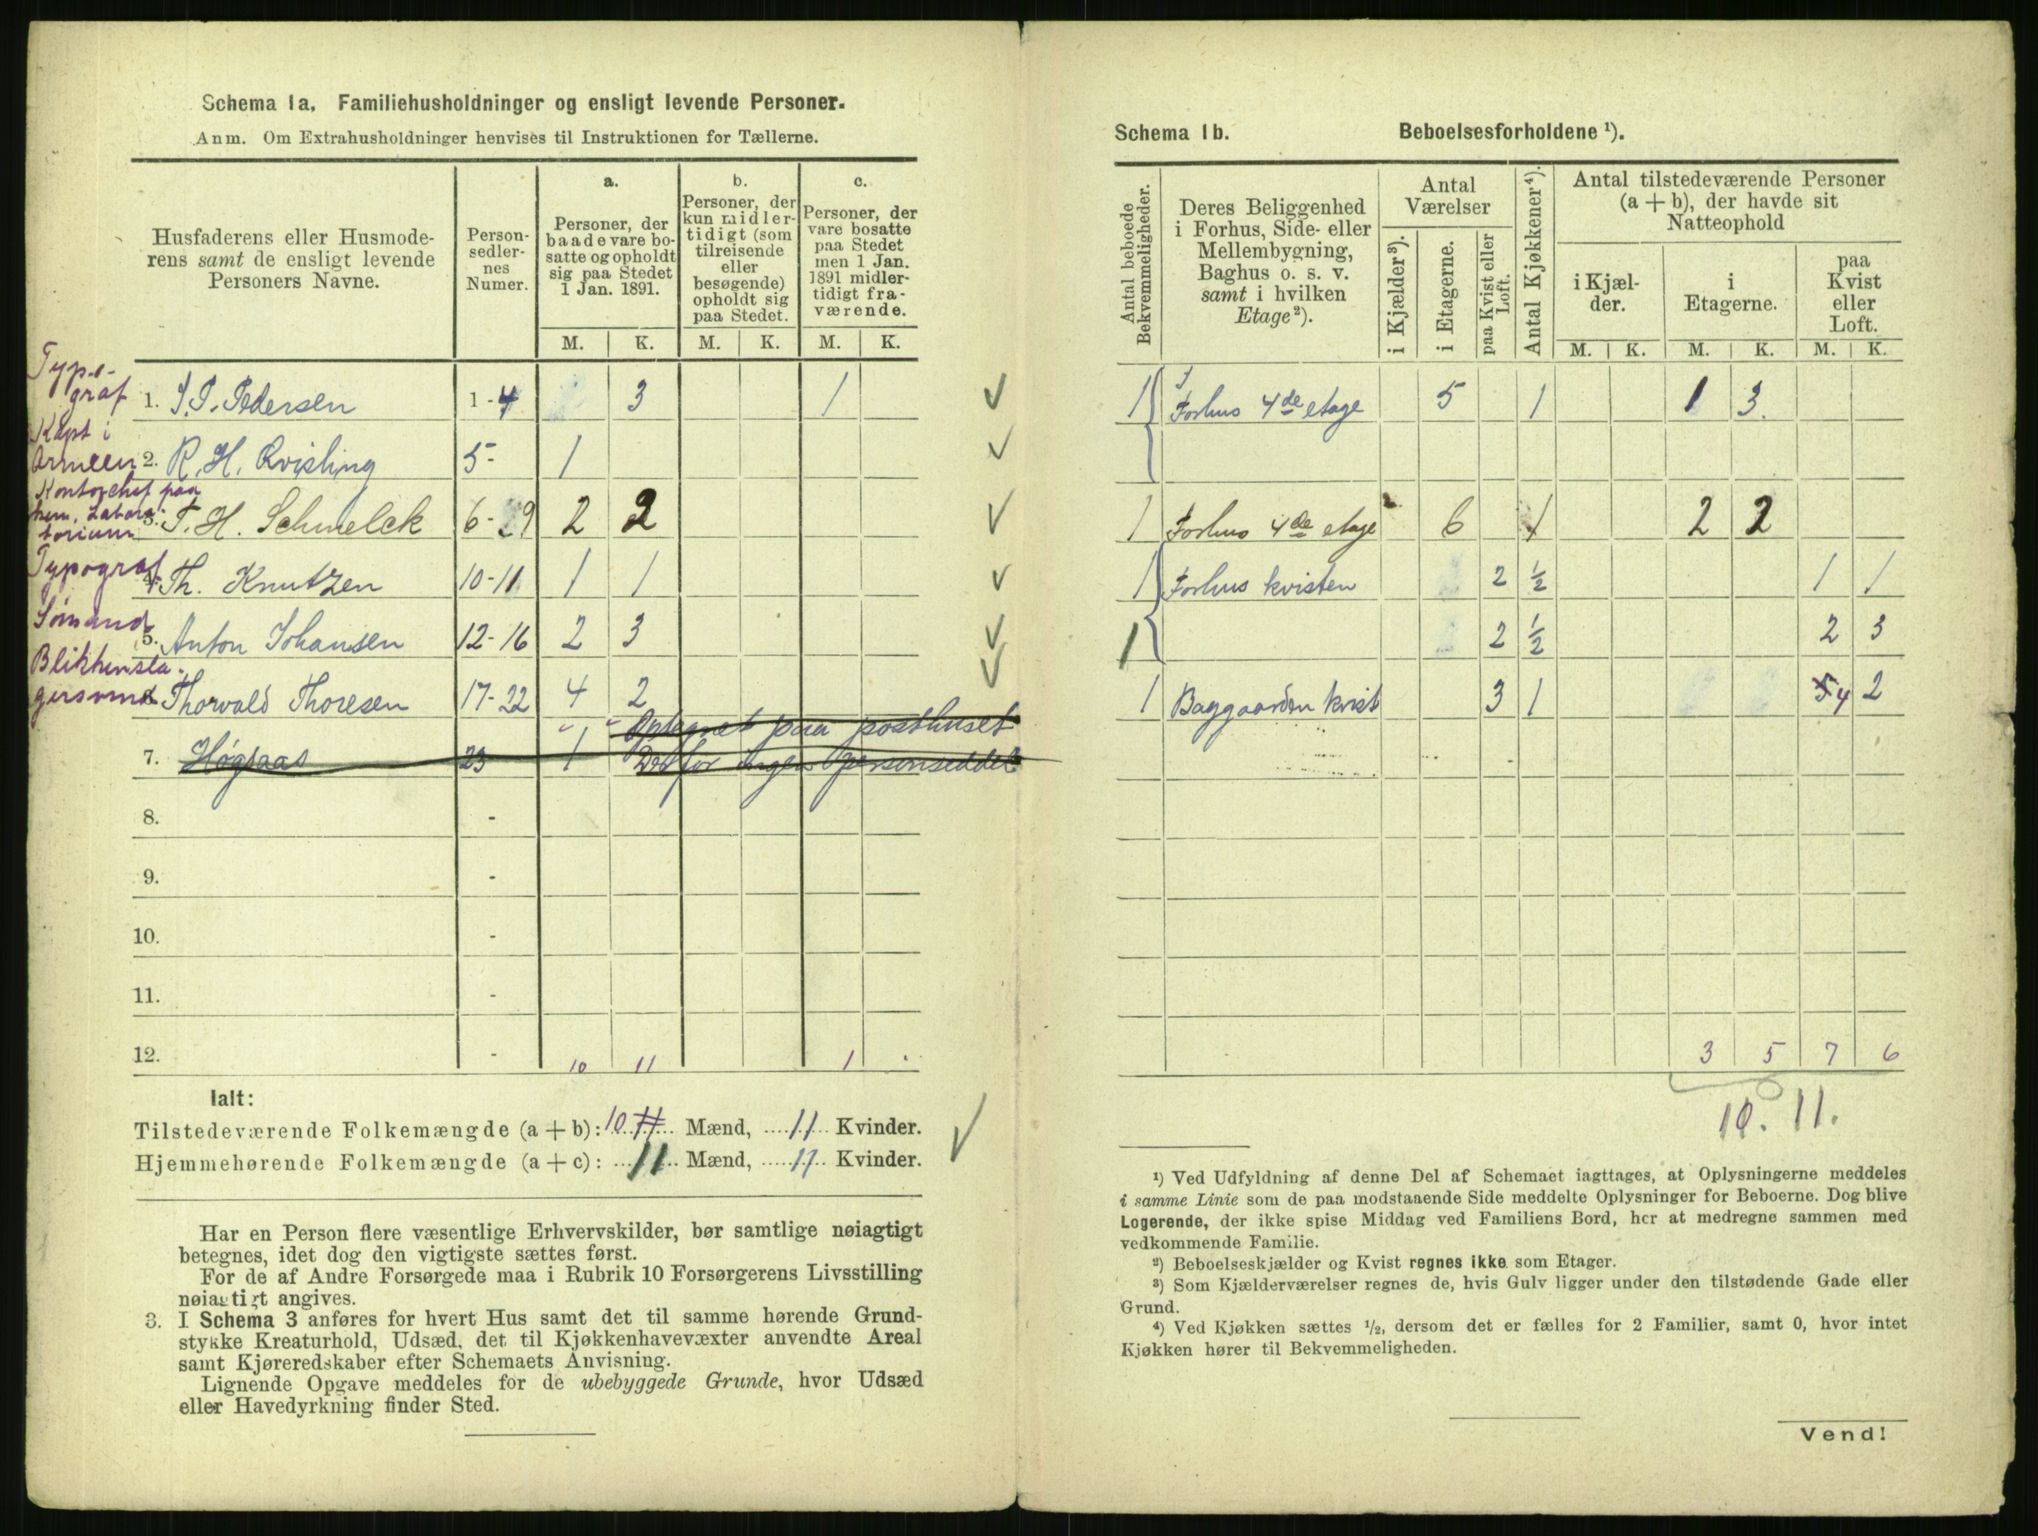 Schema 1a. Familiehusholdninger og ensligt levende Personer.
Anm. Om Extrahusholdninger henvises til Instruktionen for Tællerne.
Husfaderens eller Husmoderens samt de ensligt levende Personers Navne.
Personsedlernes Numer.
a. Personer, der baade vare bosatte og opholdt sig paa Stedet 1 Jan. 1891.
b. Personer, der kun midlertidigt (som tilreisende eller besøgende) opholdt sig paa Stedet.
c. Personer, der vare bosatte paa Stedet men 1 Jan. 1891 midlertidigt fraværende.
M. K. M. K. M. K.
Typograf 1. S. T. Pedersen 1-4 3 1 ✓
Kapt i Armeen 2. R. H. Qvisling 5- 1 ✓
Kontorchef paa kem. Laboratorium 3. T. H. Schmelck 6-9 2 2 ✓
Typograf 4. Th. Knutzen 10-11 1 1 ✓
Sømand 5. Anton Johansen 12-16 2 3 ✓
Blikkenslagersvend 6. Thorvald Thoresen 17-22 4 2 ✓
Optegnet paa posthuset
7. Høgsaas 23 1 Det for ingen personseddel
8. -
9. -
10. -
11. -
12. - 10 11 1 .
Ialt:
Tilstedeværende Folkemængde (a + b): 10 11 Mænd, 11 Kvinder.
Hjemmehørende Folkemængde (a + c): 11 Mænd, 11 Kvinder. ✓
Har en Person flere væsentlige Erhvervskilder, bør samtlige nøiagtigt
betegnes, idet dog den vigtigste sættes først.
For de af Andre Forsørgede maa i Rubrik 10 Forsørgerens Livsstilling
nøiagtigt angives.
3. I Schema 3 anføres for hvert Hus samt det til samme hørende Grund-
stykke Kreaturhold, Udsæd, det til Kjøkkenhavevæxter anvendte Areal
samt Kjøreredskaber efter Schemaets Anvisning.
Lignende Opgave meddeles for de ubebyggede Grunde, hvor Udsæd
eller Havedyrkning finder Sted.
Schema 1b. Beboelsesforholdene ¹).
Antal beboede Bekvemmeligheder.
Deres Beliggenhed i Forhus, Side- eller Mellembygning, Baghus o. s. v. samt i hvilken Etage²).
Antal Værelser
i Kjælder³).
i Etagerne.
paa Kvist eller Loft.
Antal Kjøkkener⁴).
Antal tilstedeværende Personer (a + b), der havde sit Natteophold
i Kjælder.
i Etagerne.
paa Kvist eller Loft.
M. K. M. K. M. K.
1 Forhus 4de etage 5 1 1 3.
1 Forhus 4de etage 6 1 2 2
1 Forhus kvisten 2 ½ 1 1
1 2 ½ 2 3
1 Baggaarden kvist 3 1 5 4 2
3 5 7 6
10. 11.
¹) Ved Udfyldning af denne Del af Schemaet iagttages, at Oplysningerne meddeles
i samme Linie som de paa modstaaende Side meddelte Oplysninger for Beboerne. Dog blive
Logerende, der ikke spise Middag ved Familiens Bord, her at medregne sammen med
vedkommende Familie.
²) Beboelseskjælder og Kvist regnes ikke som Etager.
³) Som Kjælderværelser regnes de, hvis Gulv ligger under den tilstødende Gade eller
Grund.
⁴) Ved Kjøkken sættes ½, dersom det er fælles for 2 Familier, samt 0, hvor intet
Kjøkken hører til Bekvemmeligheden.
Vend!